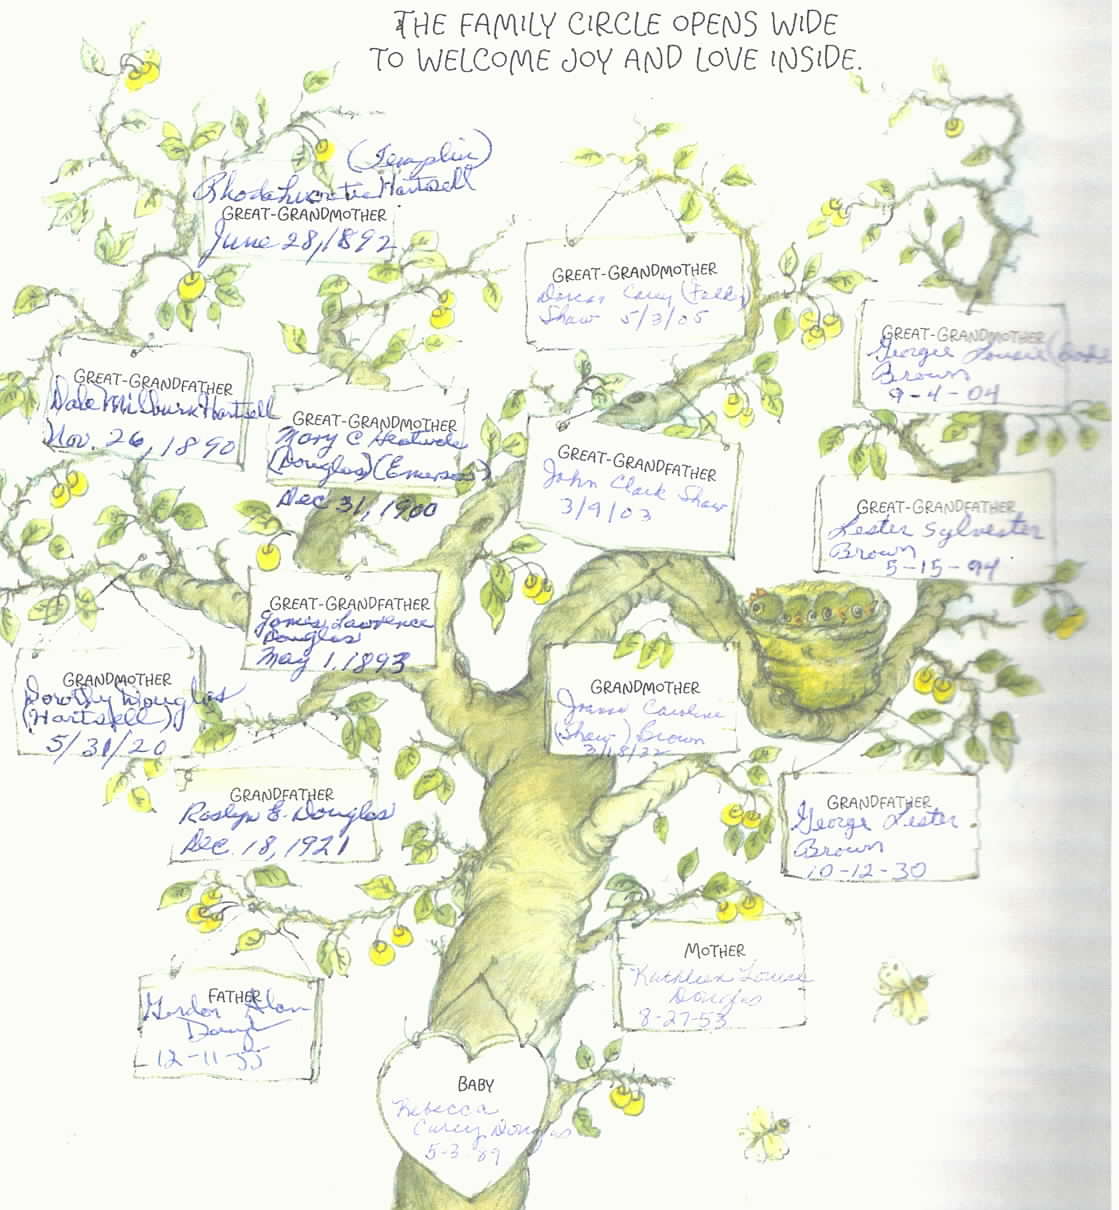 THE FAMILY CIRCLE OPENS WIDE
TO WELCOME JOY AND LOVE INSIDE.
(Templin)
Rhoda Lucretia Hartsell
GREAT-GRANDMOTHER
June 28, 1892
GREAT-GRANDMOTHER
Dorcas Carey
Shaw 5/3/05
GREAT-GRANDMOTHER
Georgie Lousie
Brown
9-4-04
GREAT-GRANDFATHER
Dale Milburn Hartsell
Nov. 26, 1890
GREAT-GRANDMOTHER
Mary C Heatwole
(Douglas) (Emerson)
Dec 31, 1900
GREAT-GRANDFATHER
John Clark Shaw
3/9/03
GREAT-GRANDFATHER
Lester Sylvester
Brown
5-15-94
GREAT-GRANDFATHER
James Lawrence
Douglas
May 1, 1893
GRANDMOTHER
Dorothy Douglas
(Hartsell)
5/31/20
GRANDMOTHER
Caroline
(Shaw) Brown
3/18/32
GRANDFATHER
Roslyn E. Douglas
Dec. 18, 1921
GRANDFATHER
George Lester
Brown
10-12-30
FATHER
Gordon Alan
12-11-55
MOTHER
Kathleen Louise
Douglas
8-27-53
BABY
Rebecca
Carey Douglas
5-3-89